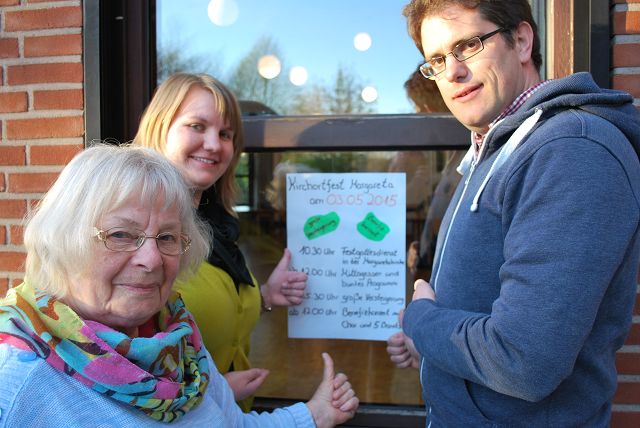 Kirchortfest Margareta
am 03.05.2015
große
Versteigerung
10.30 Uhr Festgottesdienst
in der Margaretakirche
12.00 Uhr Mittagessen und
buntes Programm
15.30 Uhr große Versteigerung
ab 17.00 Uhr Benefizkonzert mit
Chor und 5